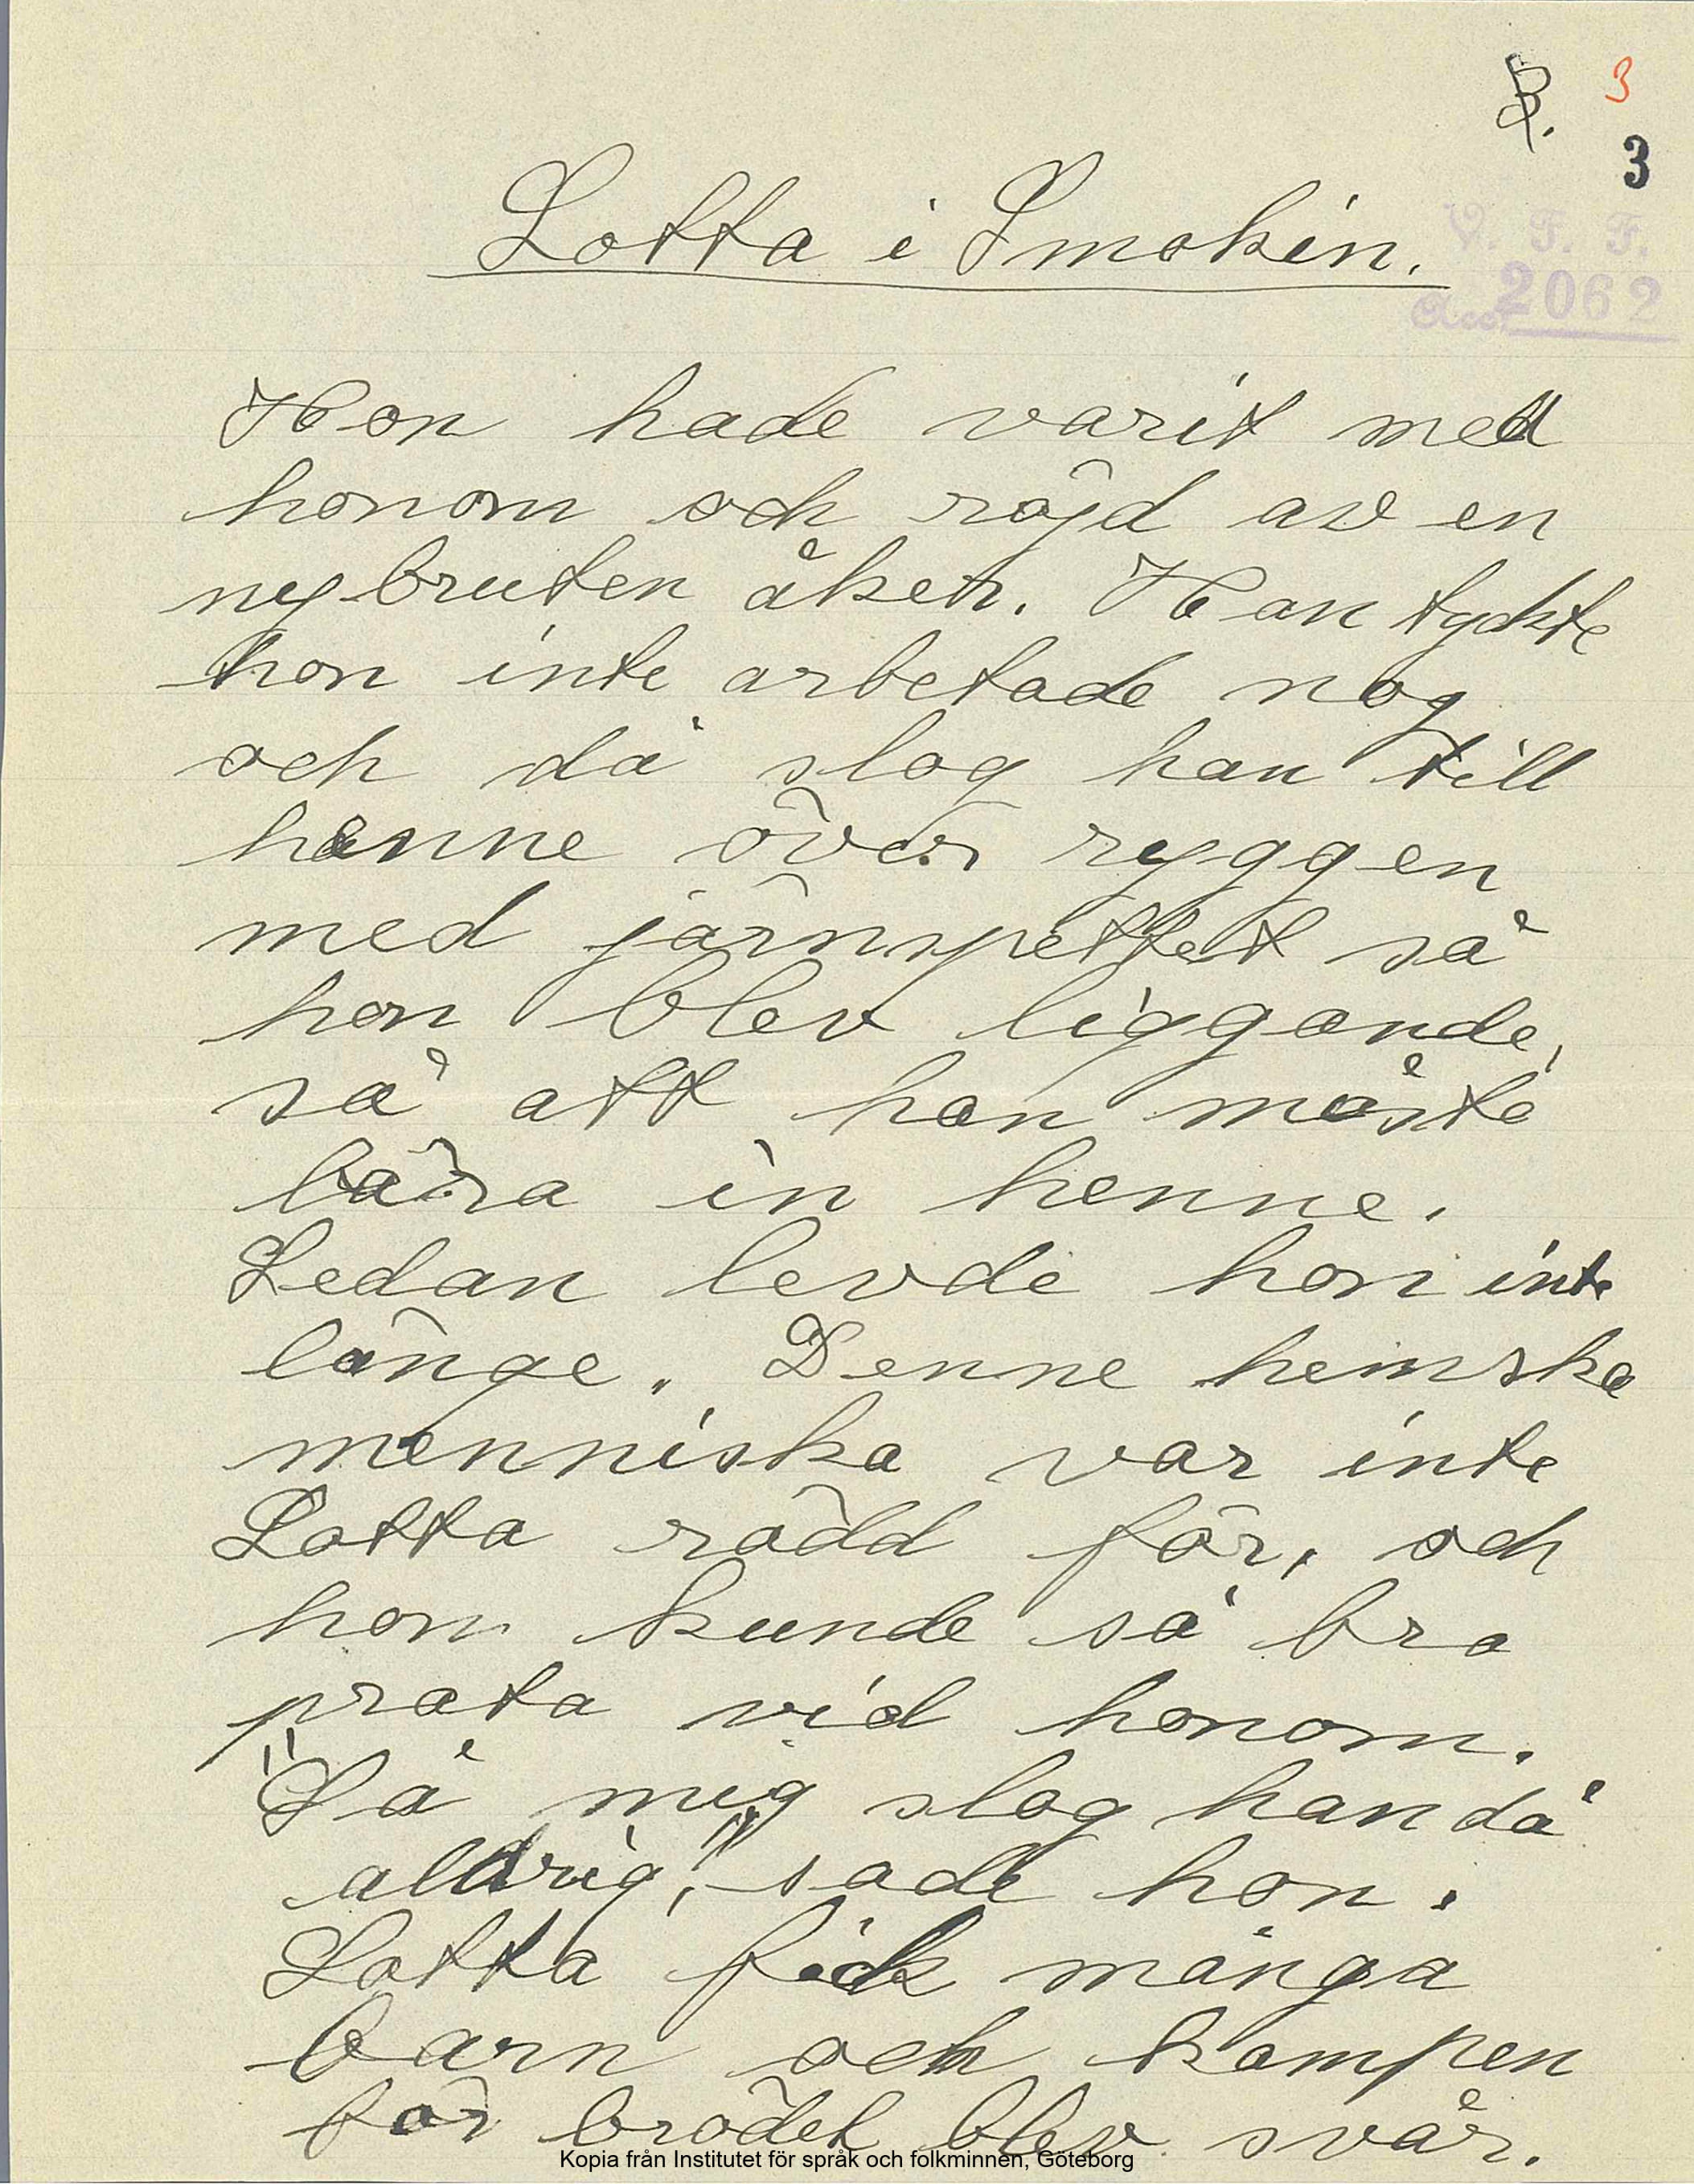 3. 3
3
Lotta i Smokin.
V. F. F.
Acc. 2062
Hon hade varit med
honom och röjd av en
nybruten åker. Han tyckte
hon inte arbetade nog
och då slog han till
henne över ryggen
med järnspettet så
hon blev liggande,
så att han måste
bära in henne.
Sedan levde hon inte
länge. Denne hemska
menniska var inte
Lotta rädd för, och
hon kunde så bra
prata vid honom.
"Så mig slog han då
aldrig," sade hon.
Lotta fick många
barn och kampen
för brödet blev svår.
Kopia från Institutet för språk och folkminnen, Göteborg